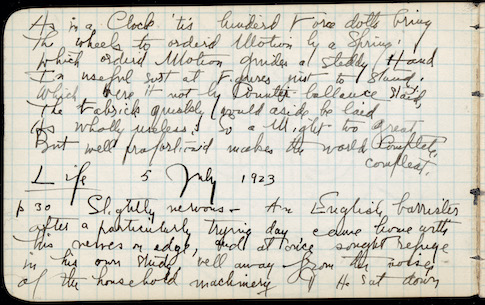 As in a Clock 'tis hinder'd Force doth bring
The wheels to order'd Motion by a Spring;
Which order'd Motion guides a steddy Hand
In useful sort at Figures just to stand;
Which were it not by Counter-ballance staid,
The Fabrick quickly would aside be laid
As wholly useless: So a Might too great
But well proportion'd makes the world Complete.
compleat.
Life 5 July 1923
p 30 Slightly nervous - An English barrister
after a particularly trying day came home with
his nerves on edge, and at once sought refuge
in his own study, well away from the noises
of the household machinery. He sat down